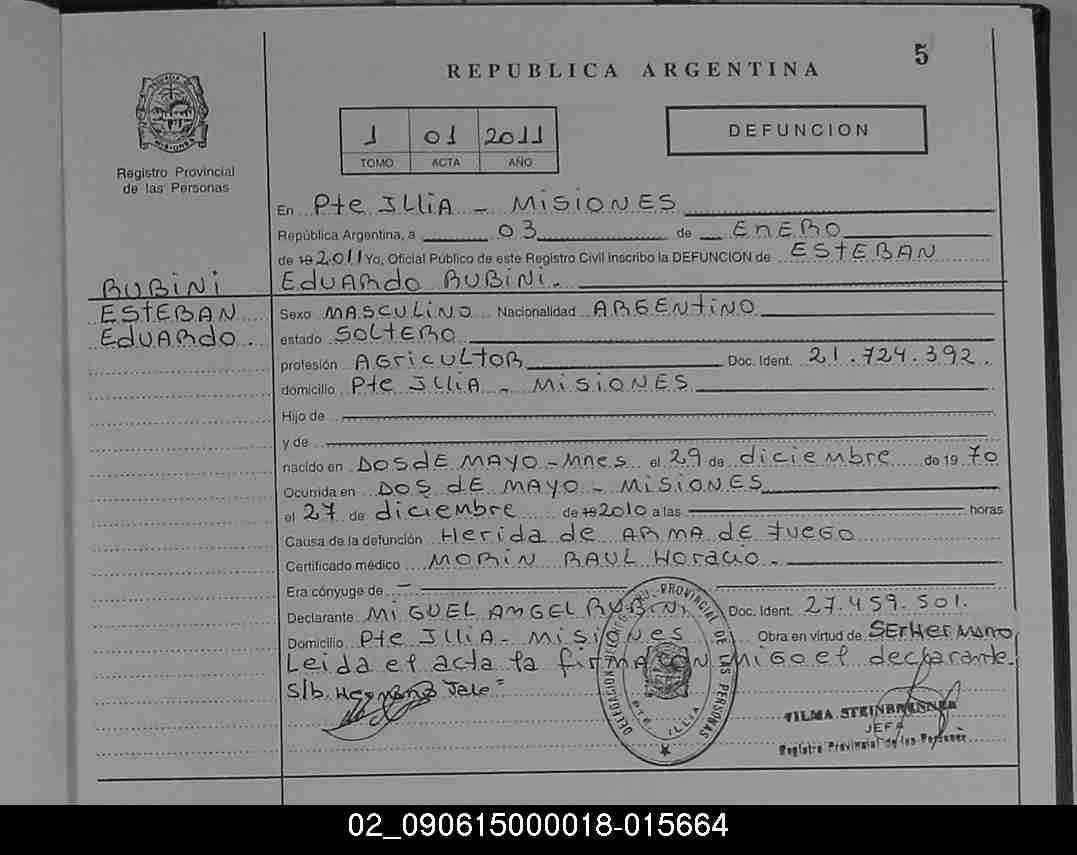 5
REPUBLICA ARGENTINA
Registro Provincial
de las Personas
1 01 2011
TOMO ACTA AÑO
DEFUNCION
En Pte ILLiA - MiSiONES
República Argentina, a 03 de ENERO
de 19 2011 Yo, Oficial Público de este Registro Civil inscribo la DEFUNCION de ESTEBAN
EdUARdo RUBiNi.-
RUBiNi
ESTEBAN
EdUARdo.
Sexo MASCULiNO Nacionalidad ARGENTiNO
estado SOLTERO
profesión AGRiCULTOR Doc. Ident. 21.724.392.
domicilio Pte ILLiA - MiSiONES
Hijo de
y de
nacido en DOS dE MAYO - MNES el 29 de diciembre de 19 70
Ocurrida en DOS dE MAYO - MiSiONES
el 27 de diciembre de 19 2010 a las horas
Causa de la defunción Herida de ARMA dE FUEGO
Certificado médico MORiN RAUL HORACiO -
Era cónyuge de -
Declarante MiGUEL ANGEL RUBiNi Doc. Ident. 27.459.501.
Domicilio Pte ILLiA - MiSiones Obra en virtud de SER Hermano
Leida el acta la fiRMA CON MiGO el declarante
S/b. Hermano Vale"
DELEGACION DEL REGISTRO PROVINCIAL DE LAS PERSONAS
PTE. ILLIA
VILMA STEINBRENNER
JEFA
Registro Provincial de las Personas
02_090615000018-015664